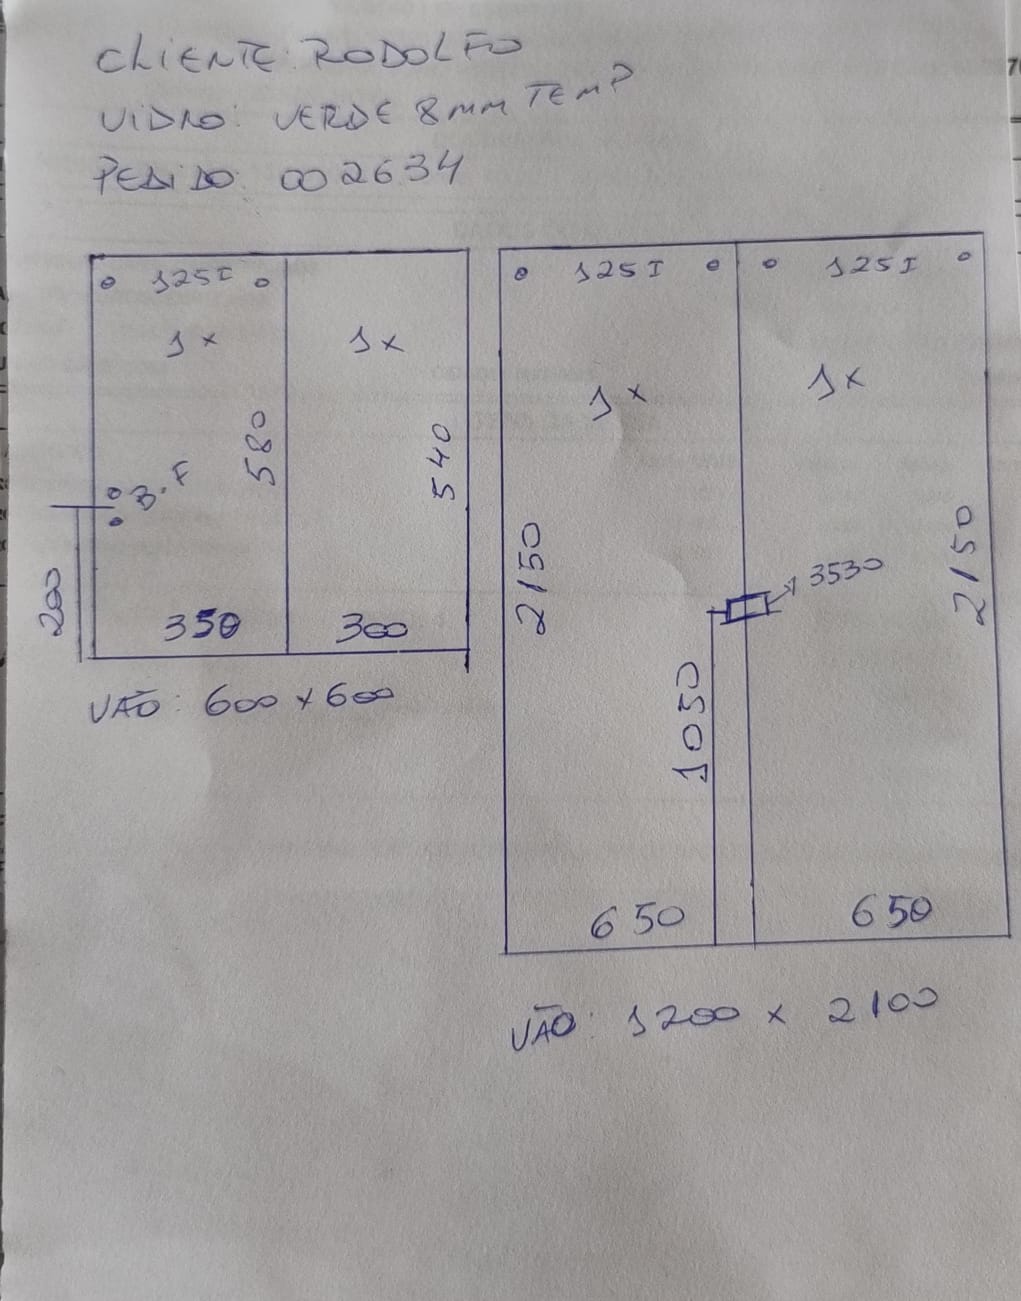 CLIENTE: RODOLFO
VIDRO: VERDE 8MM TEMP
PEDIDO: 002634
125I
1x
1x
580
540
B.F
200
350
300
VÃO: 600 x 600
125I
125I
1x
1x
2150
2150
3530
1050
650
650
VÃO: 1200 x 2100